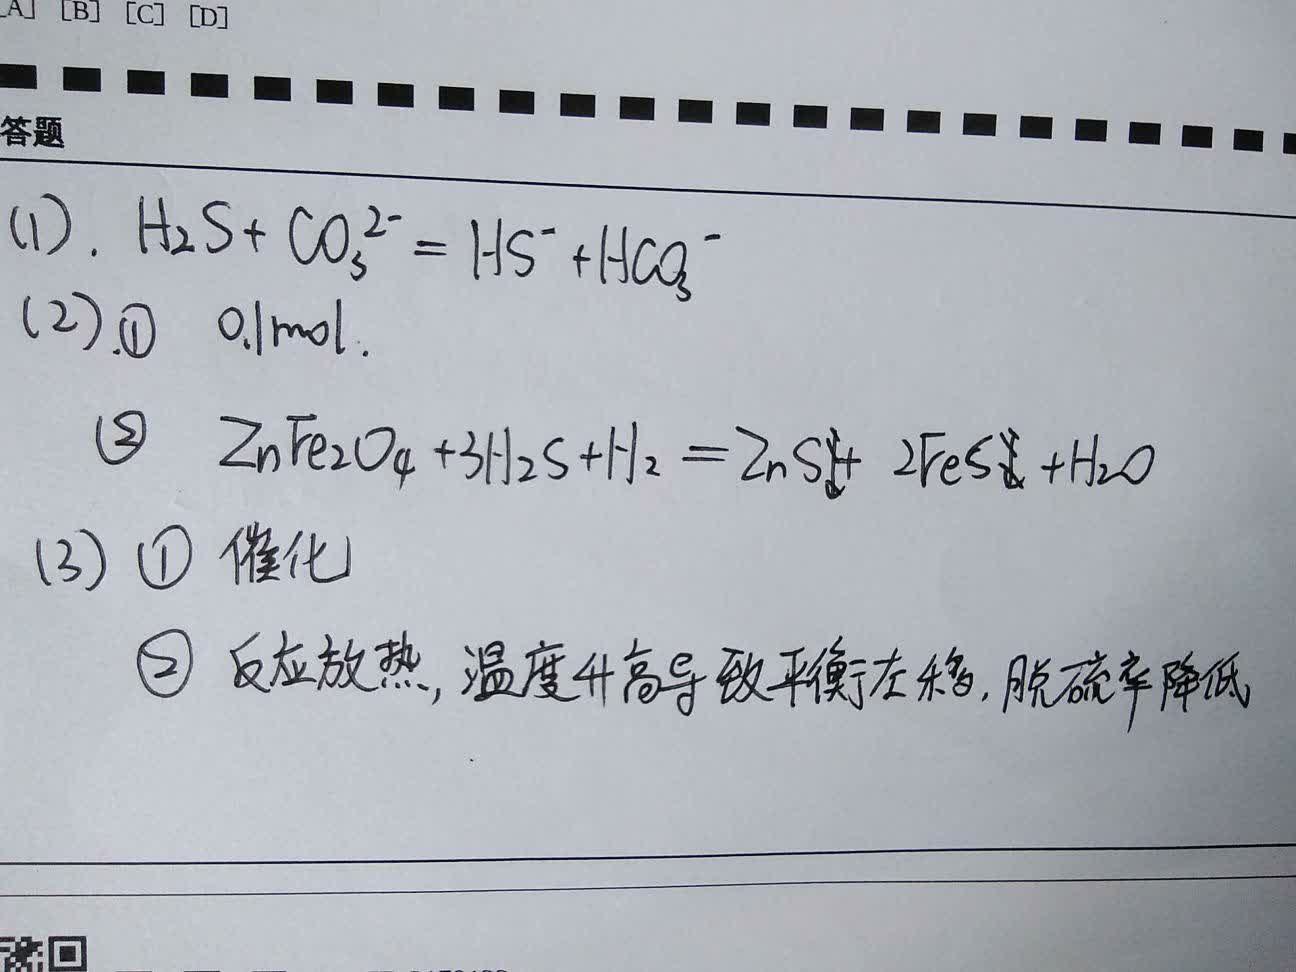 [A] [B] [C] [D]
答题
(1). H₂S + CO₃²⁻ = HS⁻ + HCO₃⁻
(2).① 0.1mol.
② ZnFe₂O₄ + 3H₂S + H₂ = ZnS + 2FeS + H₂O
(3) ① 催化
② 反应放热,温度升高导致平衡左移,脱硫率降低